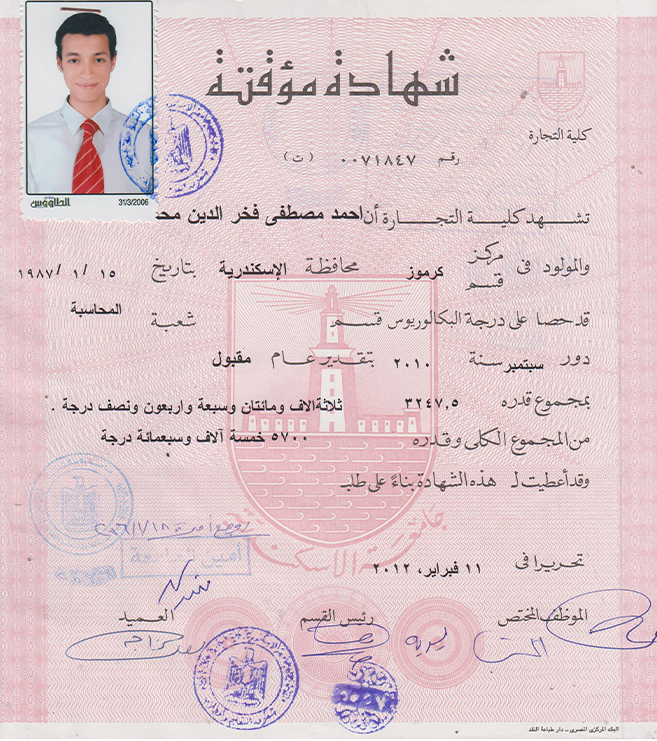 شهادة مؤقتة
كلية التجارة
رقم ٠٠٧١٨٤٧ (ت)
الطاووس 31/3/2006
تشهد كلية التجارة أن احمد مصطفى فخر الدين محمد
والمولود فى مركز قسم كرموز محافظة الإسكندرية بتاريخ ١٥ / ١ / ١٩٨٧
قد حصل على درجة البكالوريوس قسم شعبة المحاسبة
دور سبتمبر سنة ٢٠١٠ بتقدير عام مقبول
بمجموع قدره ٣٢٤٧,٥ ثلاثة الاف ومائتان وسبعة واربعون ونصف درجة .
من المجموع الكلى وقدره ٥٧٠٠ خمسة آلاف وسبعمائة درجة
وقد أعطيت لـ هذه الشهادة بناءً على طلبـ
جامعة الإسكندرية
تحريرا فى ١١ فبراير، ٢٠١٢
الموظف المختص رئيس القسم العميد
البنك المركزى المصرى - دار طباعة النقد